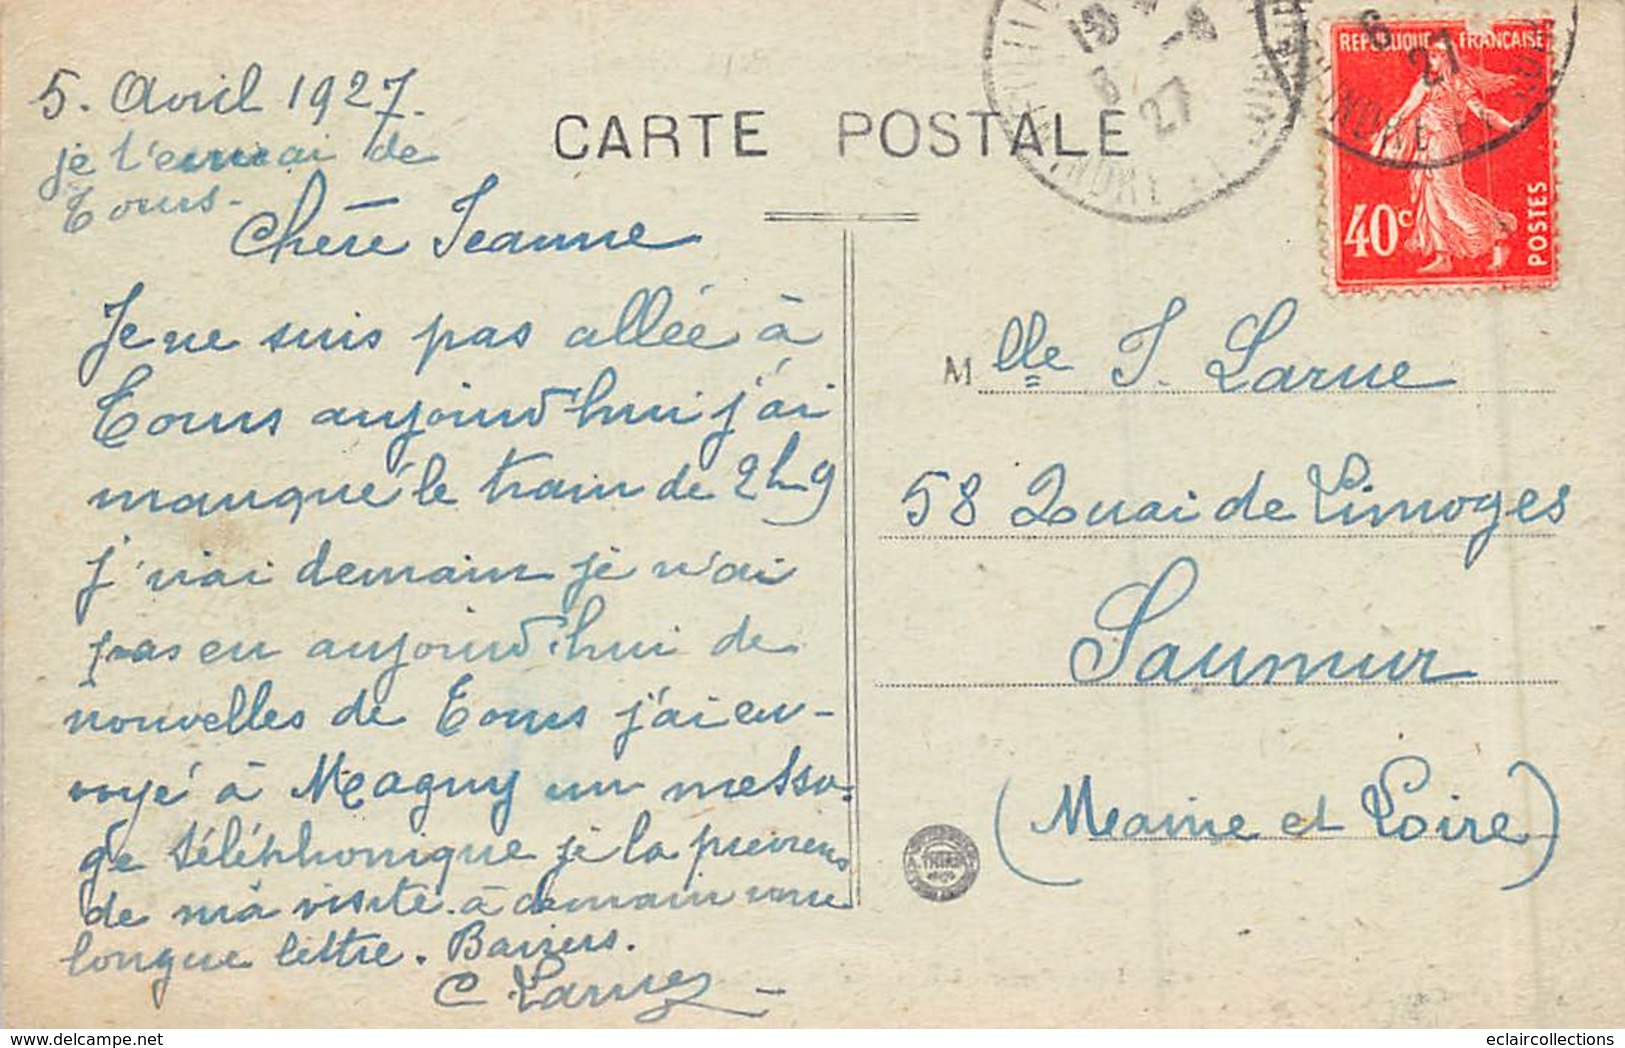 5. Avril 1927.
je l'enverrai de
Tours.
CARTE POSTALE
Chère Jeanne
Je ne suis pas allée à
Tours aujourd'hui j'ai
manqué le train de 2h9
j'irai demain je n'ai
pas eu aujourd'hui de
nouvelles de Tours j'ai en-
voyé à Maguy un messa-
ge téléphonique je la préviens
de ma visite. à demain une
longue lettre. Baisers.
C Larue
REPUBLIQUE FRANÇAISE
40c
POSTES
6
27
INDRE ET LOIRE
27
INDRE ET LOIRE
Mlle J. Larue
58 Quai de Limoges
Saumur
(Maine et Loire)
eclaircollections